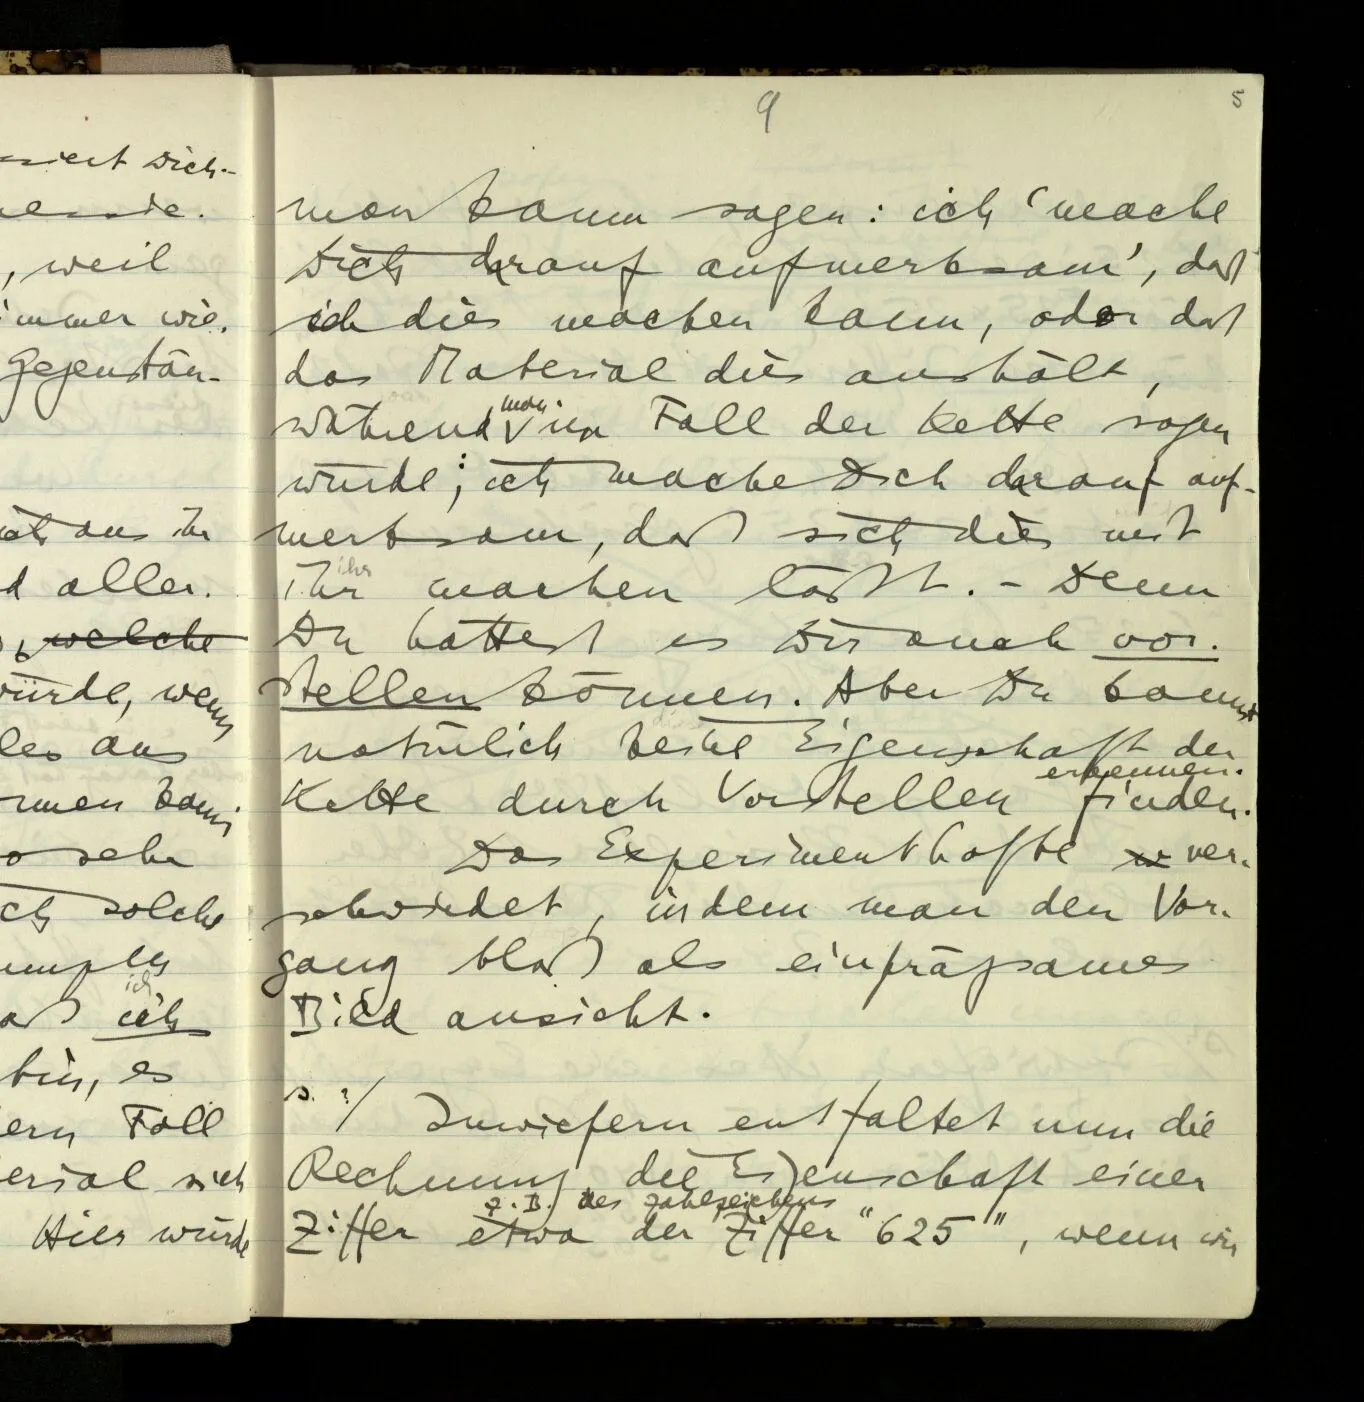 ssiert Dich-
, weil
immer wie.
Gegenstän-
aus ihr
d aller.
welche
würde, wenn
les aus
rmen kann.
so sehr
ch solche
ich
ich
bin, es
ern Fall
erial sich
Hier würde
9
5
man kaum sagen: ich 'mache
Dich darauf aufmerksam', daß
ich dies machen kann, oder daß
das Material dies aushält,
man
während im Fall der Kette sagen
würde; ich mache Dich darauf auf-
merksam, daß sich dies mit
ihr
ihr machen läßt. – Denn
Du hättest es Dir auch vor-
stellen können. Aber Du kannst
natürlich keine Eigenschaft der
erkennen.
Kette durch Vorstellen finden.
Das Experimenthafte ver-
schwindet, indem man den Vor-
gang bloß als einprägsames
Bild ansieht.
s. ?/ Inwiefern entfaltet nun die
Rechnung die Eigenschaft einer
z.B. des Zahlzeichens
Ziffer etwa der Ziffer "625", wenn wir